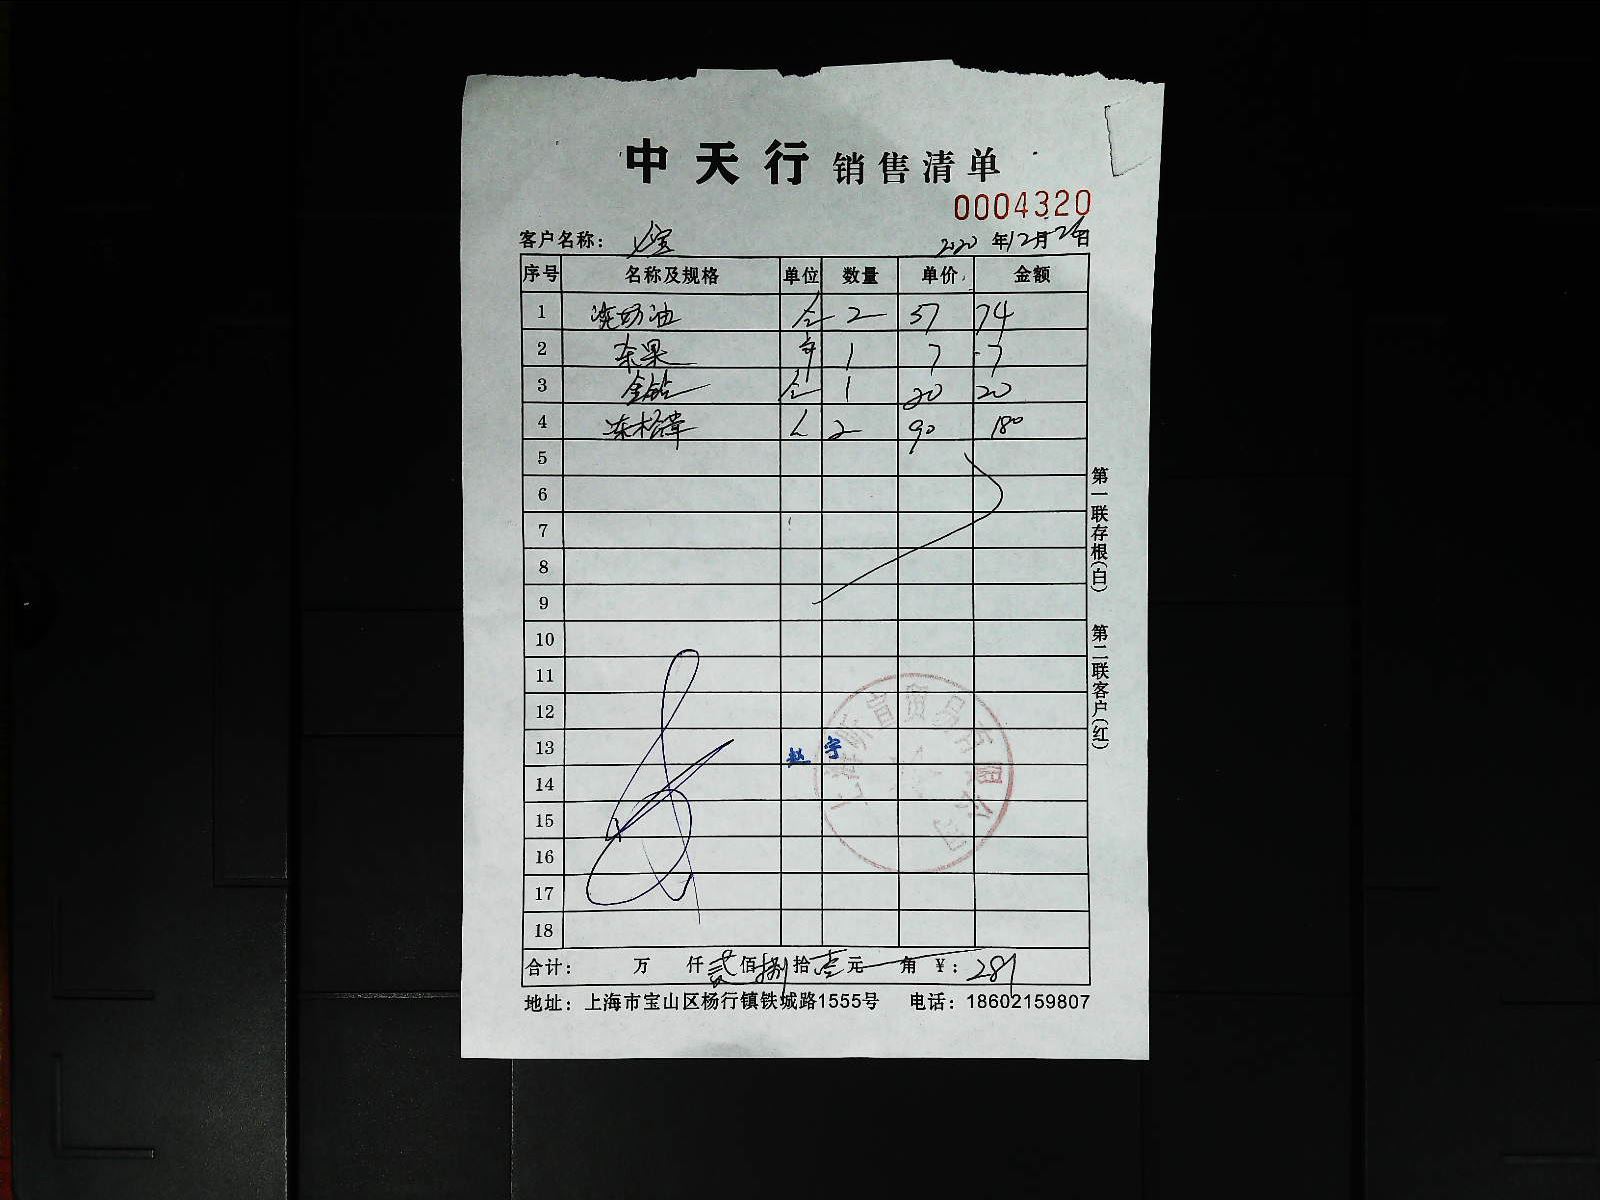 中天行 销售清单
0004320
客户名称： 2020 年 12 月 26 日
序号 名称及规格 单位 数量 单价 金额
1 淡奶油 2 37 74
2 1 7 7
3 金钻 1 20 20
4 2 90 180
5
6
7
8
9
10
11
12
13 赵宇
14
15
16
17
18
合计： 万 仟 贰 佰 捌 拾 壹 元 角 ￥： 281
地址：上海市宝山区杨行镇铁城路1555号 电话：18602159807
第一联存根(白) 第二联客户(红)
贸易有限公司